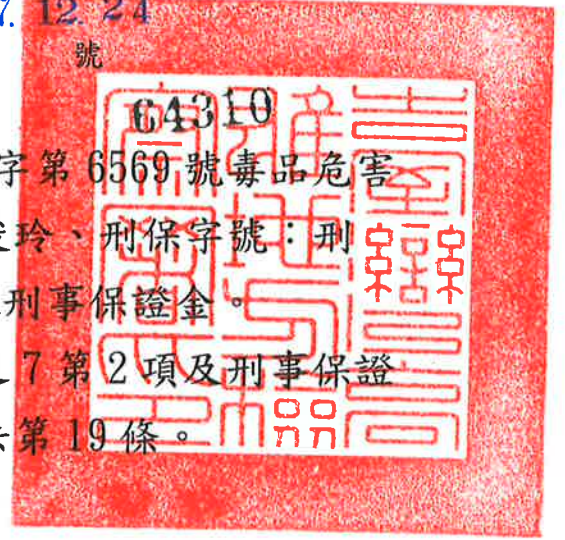 7. 12. 24
號
64310
字第 6569 號毒品危害
玲、刑保字號：刑
刑事保證金。
7 第 2 項及刑事保證
第 19 條。